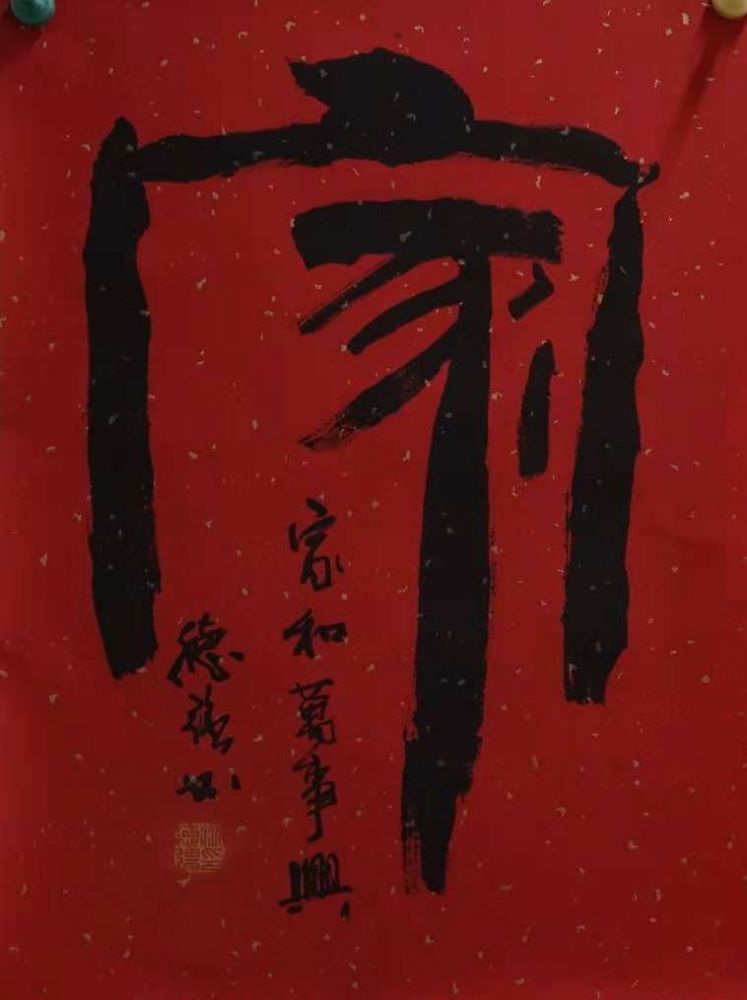 家
家和萬事興
德强